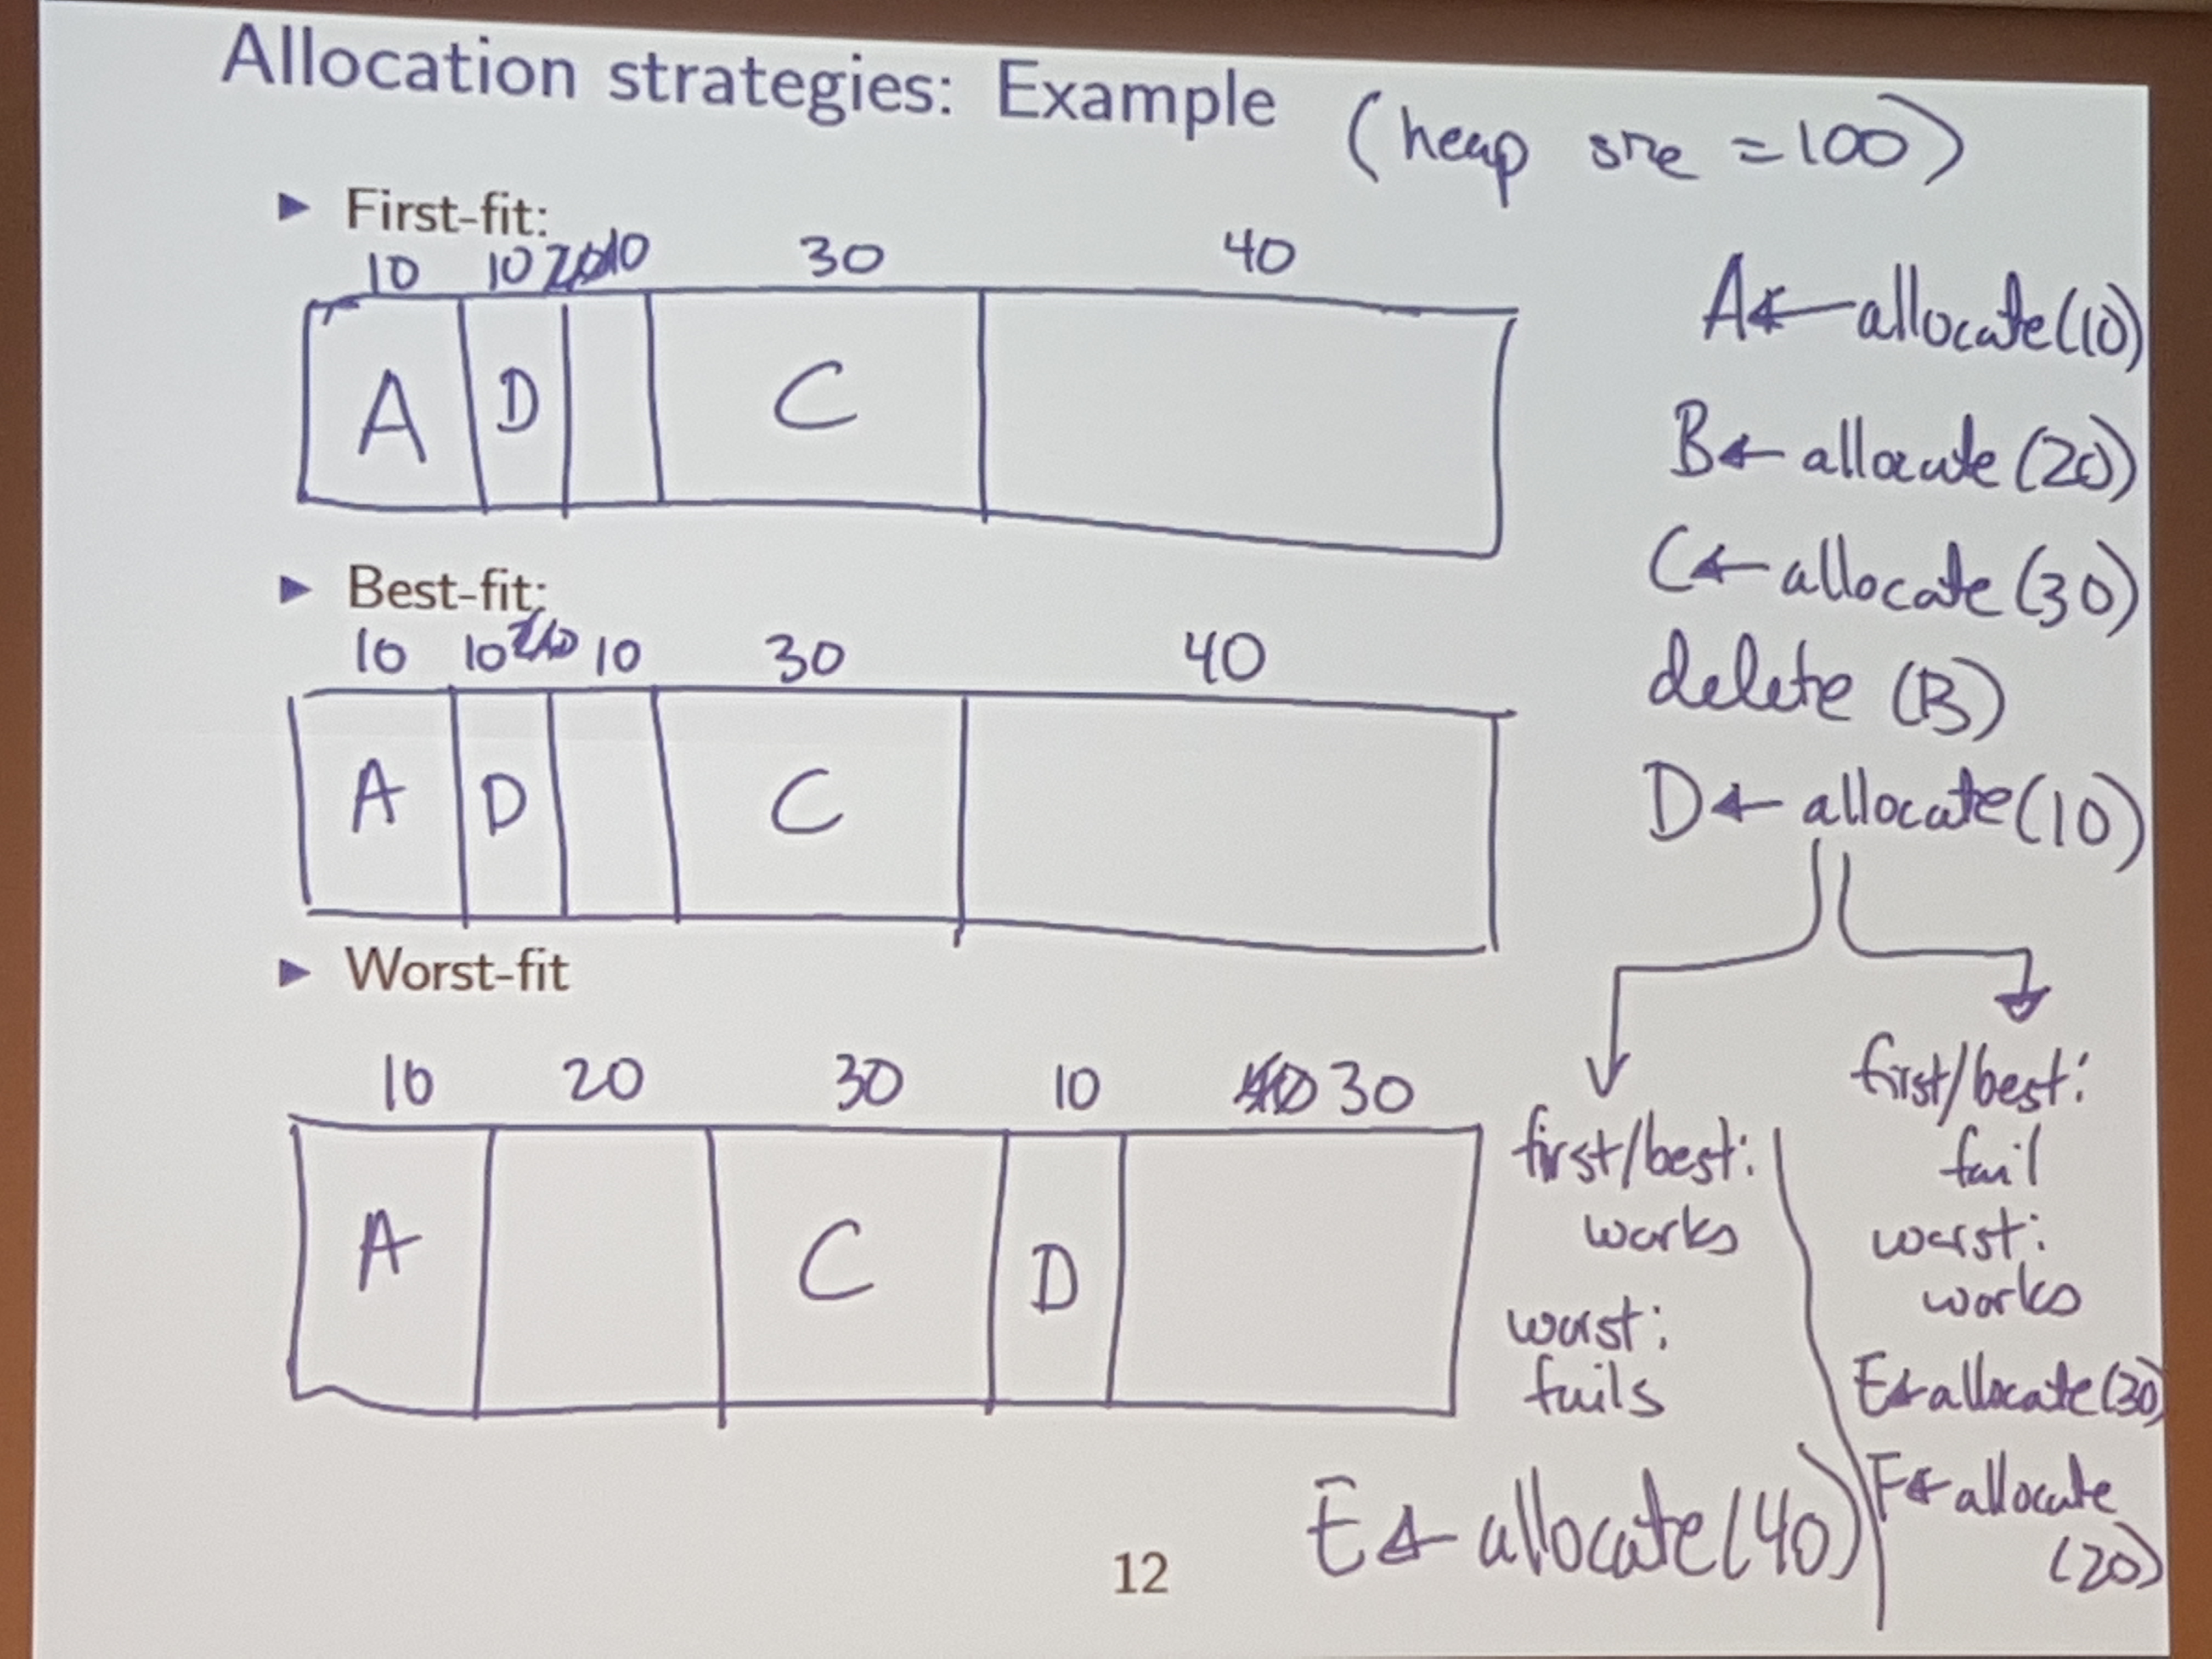 Allocation strategies: Example (heap size = 100)
► First-fit:
10 10 10 30 40
A D C
► Best-fit:
10 10 10 30 40
A D C
► Worst-fit
10 20 30 10 30
A C D
A ← allocate(10)
B ← allocate(20)
C ← allocate(30)
delete (B)
D ← allocate(10)
first/best:
works
worst:
fails
E ← allocate(40)
first/best:
fail
worst:
works
E ← allocate(30)
F ← allocate
(20)
12